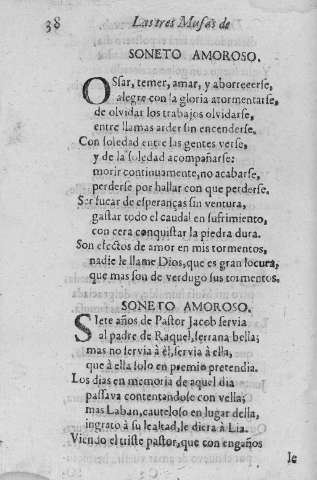 38 Las tres Musas de
SONETO AMOROSO.
OSsar, temer, amar, y aborrecerse,
alegre con la gloria atormentarse,
de olvidar los trabajos olvidarse,
entre llamas arder sin encenderse.
Con soledad entre las gentes verse,
y de la soledad acompañarse:
morir continuamente, no acabarse,
perderse por hallar con que perderse.
Ser fucar de esperanças sin ventura,
gastar todo el caudal en sufrimiento,
con cera conquistar la piedra dura.
Son efectos de amor en mis tormentos,
nadie le llame Dios, que es gran locura,
que mas son de verdugo sus tormentos.
SONETO AMOROSO.
SIete años de Pastor Jacob servia
al padre de Raquel, serrana bella;
mas no servia à èl, servia à ella,
que à ella solo en premio pretendia.
Los dias en memoria de aquel dia
passava contentandose con vella;
mas Laban, cauteloso en lugar della,
ingrato à su lealtad, le diera à Lia.
Viendo el triste pastor, que con engaños
le